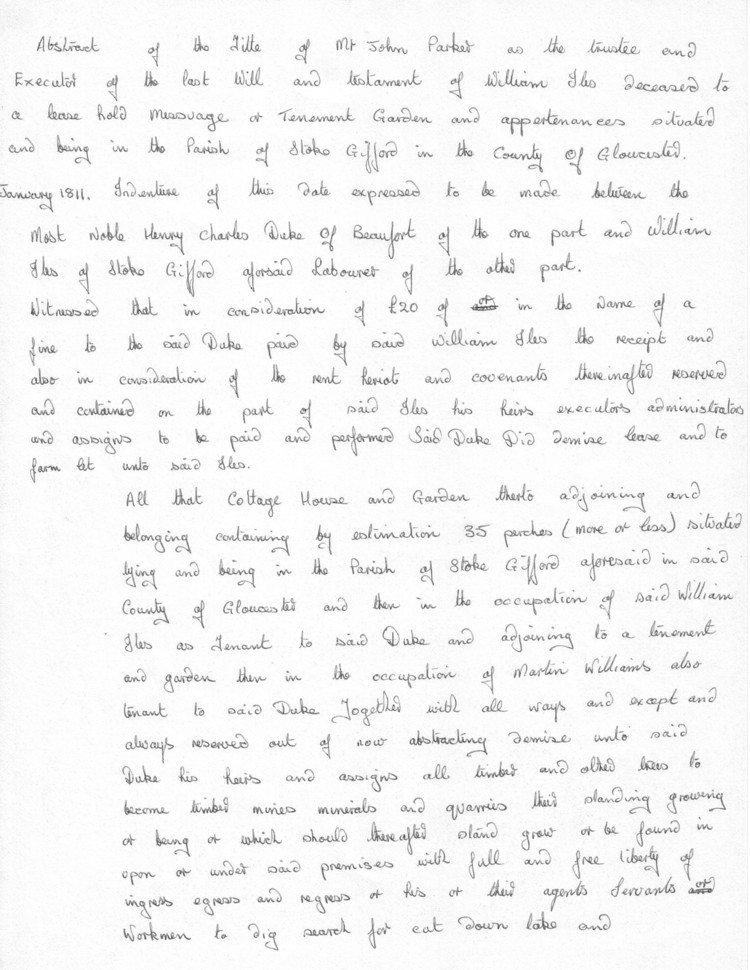 Abstract of the Title of Mr John Parker as the trustee and
Executor of the last Will and testament of William Iles deceased to
a lease hold Messuage or Tenement Garden and appertenances situated
and being in the Parish of Stoke Gifford in the County Of Gloucester.
January 1811. Indenture of this date expressed to be made between the
Most Noble Henry Charles Duke Of Beaufort of the one part and William
Iles of Stoke Gifford aforsaid Labourer of the other part.
Witnessed that in consideration of £20 of or in the Name of a
fine to the said Duke paid by said William Iles the receipt and
also in consideration of the rent heriot and covenants thereinafter reserved
and contained on the part of said Iles his heirs executors administrators
and assigns to be paid and performed Said Duke Did demise lease and to
farm let unto said Iles.
All that Cottage House and Garden therto adjoining and
belonging containing by estimation 35 perches (more or less) situated
lying and being in the Parish of Stoke Gifford aforesaid in said
County of Gloucester and then in the occupation of said William
Iles as Tenant to said Duke and adjoining to a tenement
and garden then in the occupation of Martin Williams also
tenant to said Duke Together with all ways and except and
always reserved out of now abstracting demise unto said
Duke his heirs and assigns all timber and other trees to
become timber mines minerals and quarries their standing growing
or being or which should thereafter stand grow or be found in
upon or under said premises with full and free liberty of
ingress egress and regress or his or their agents Servants or
Workmen to dig search for cut down take and